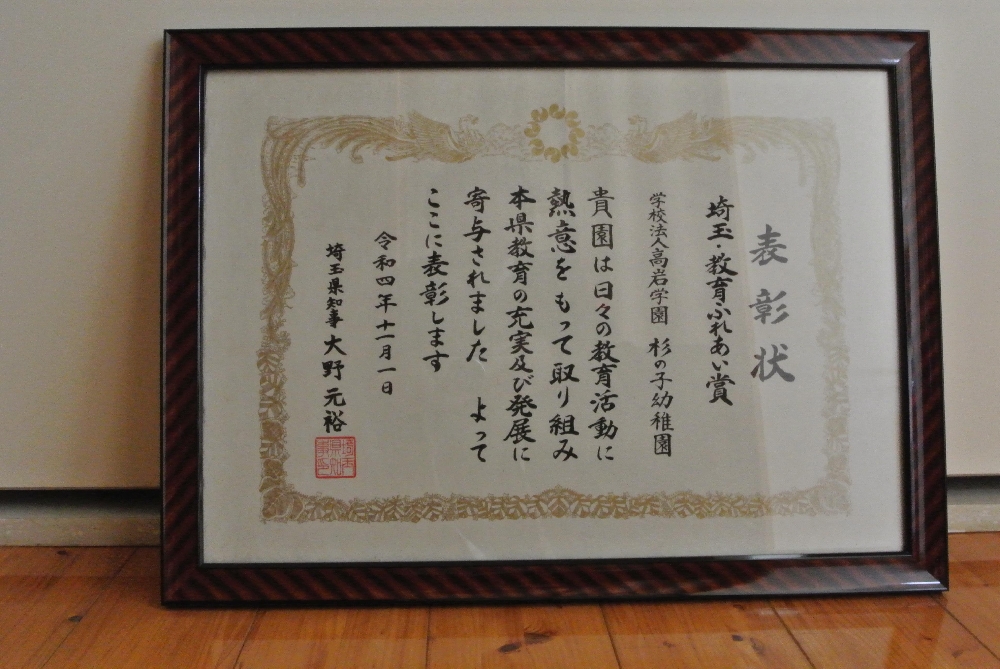 表彰状
埼玉・教育ふれあい賞
学校法人高岩学園 杉の子幼稚園
貴園は日々の教育活動に
熱意をもって取り組み
本県教育の充実及び発展に
寄与されました よって
ここに表彰します
令和四年十一月一日
埼玉県知事 大野元裕